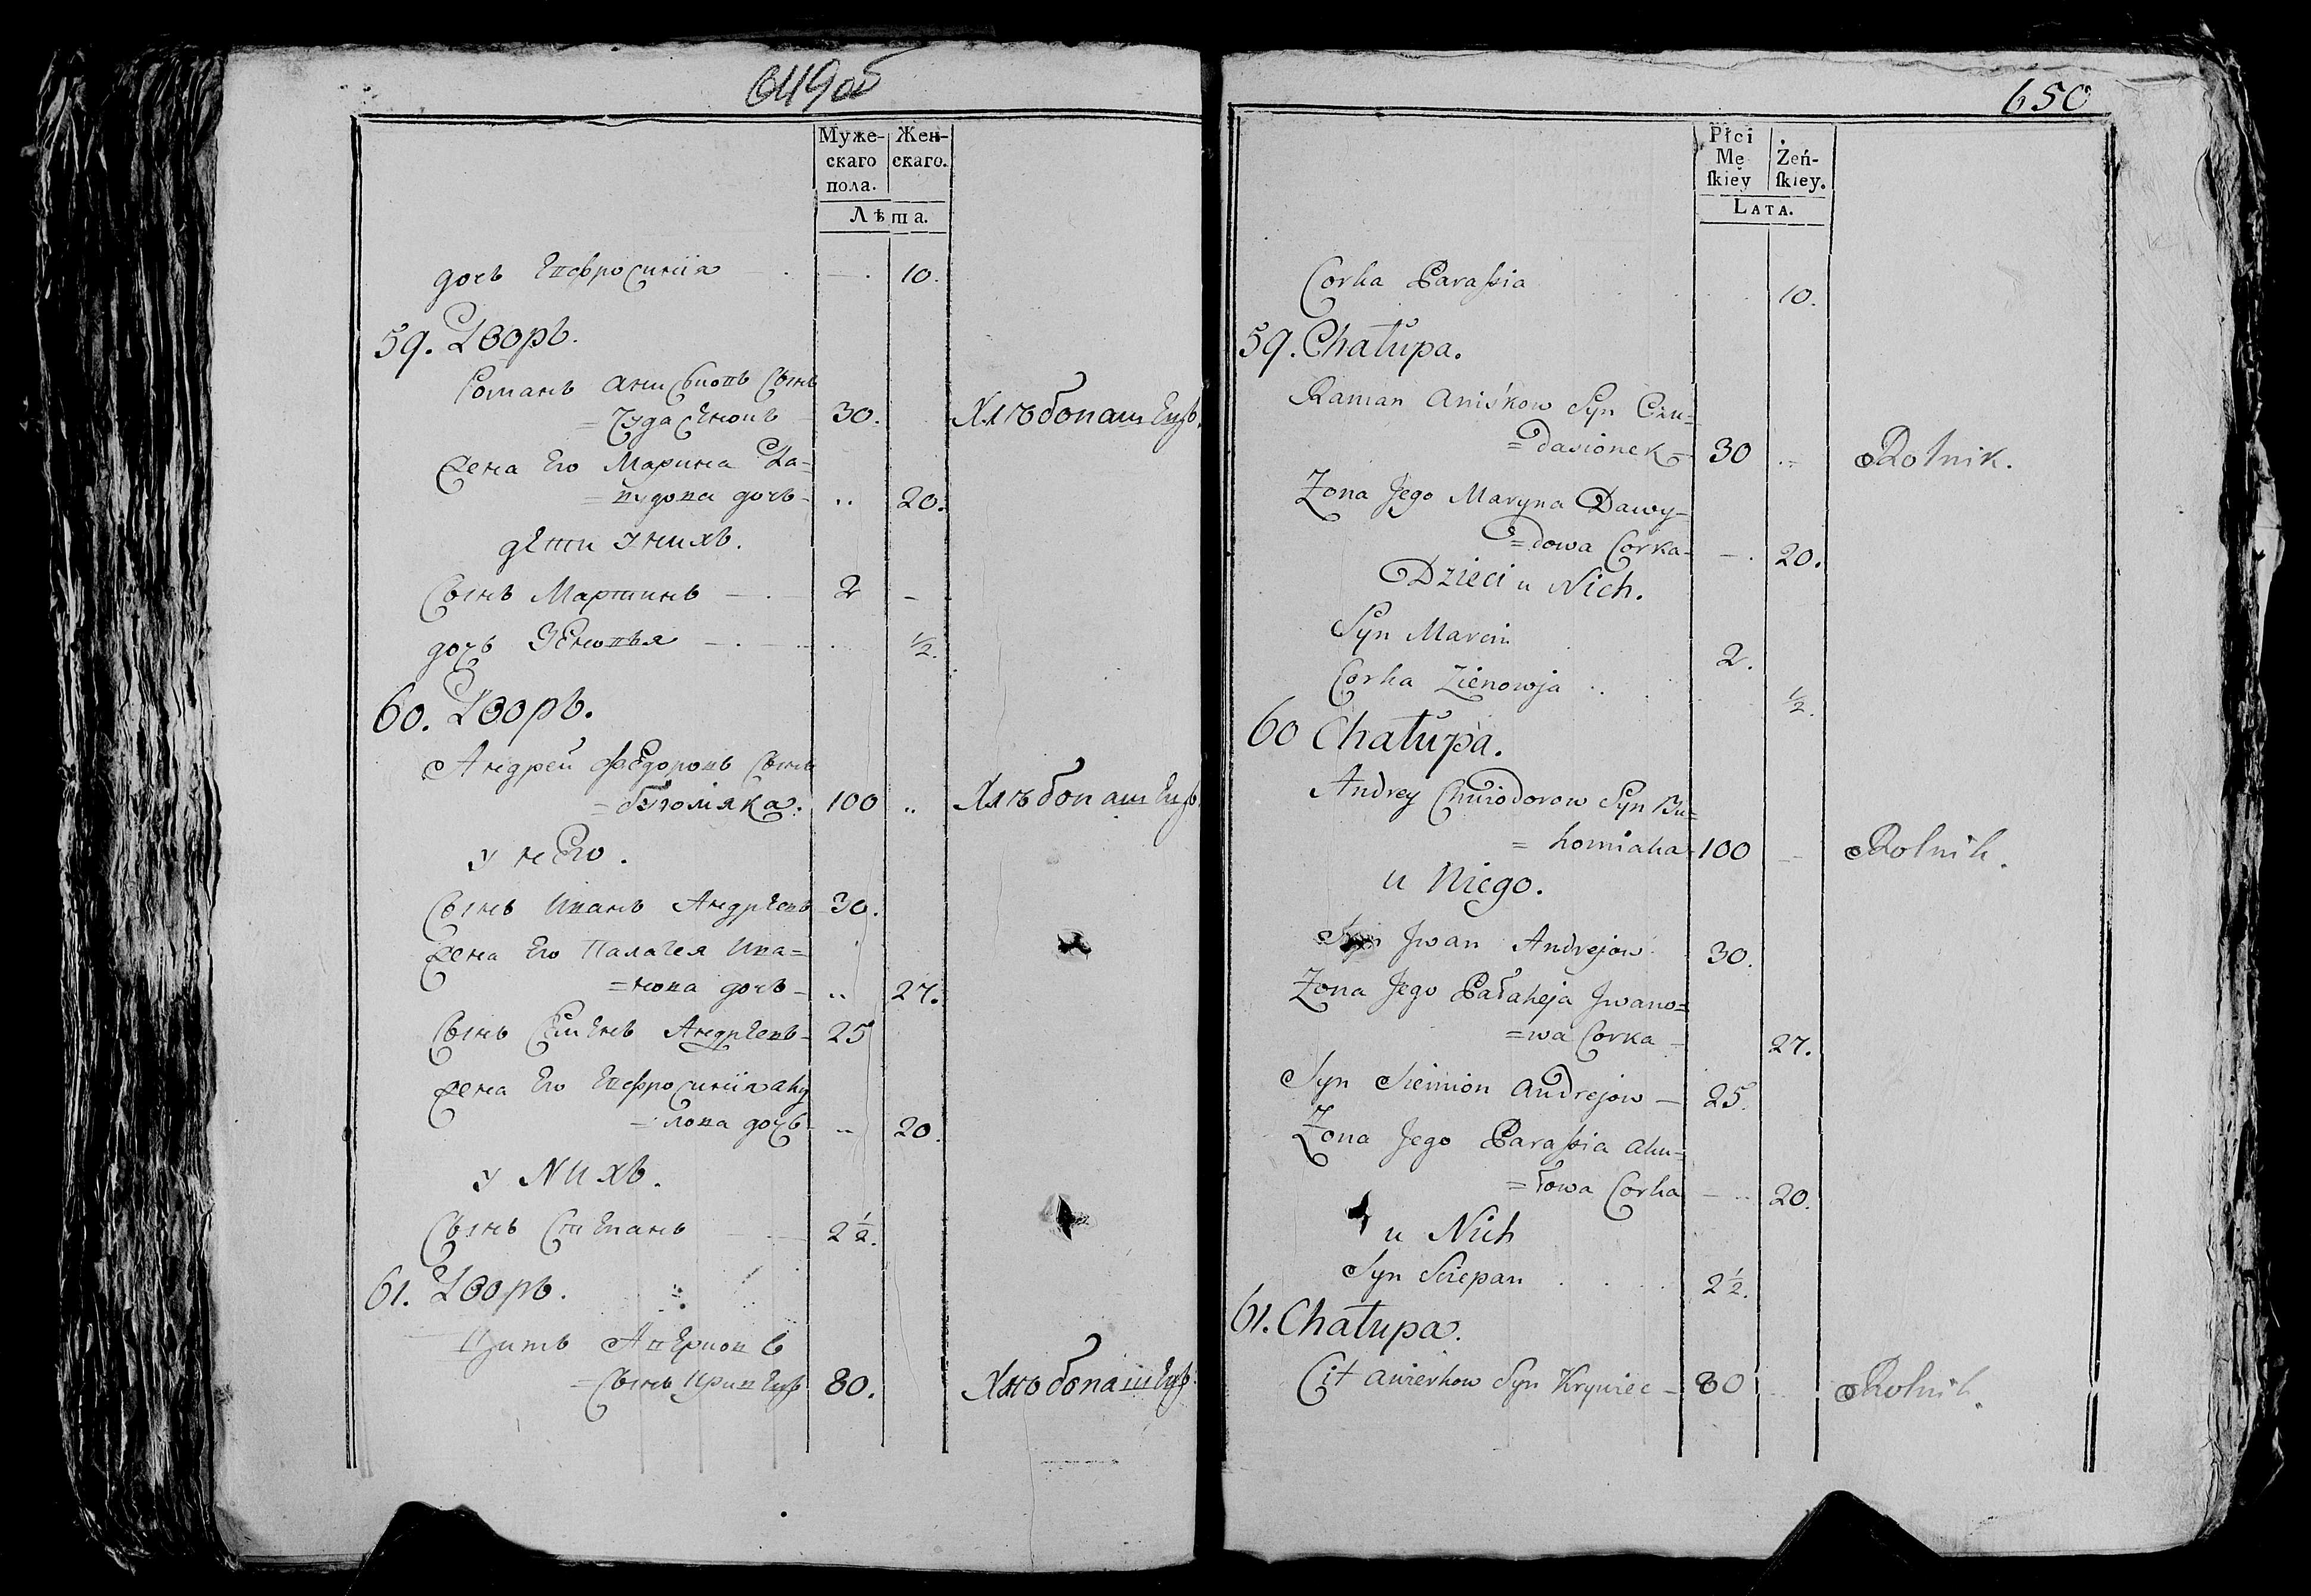 649об
Муже- Жен-
скаго скаго.
пола.
Лѣта.
дочь Евфросинія 10.
59. Дворъ.
Романъ Анисковъ Сынъ
=Чудасенокъ 30. Хлѣбопашецъ.
Жена Его Марина Да=
=выдова дочь 20.
дети У нихъ.
Сынъ Мартинъ 2
дочь Зеновья 1/2.
60. Дворъ.
Андрей Фаедоровъ Сынъ
=Бугомяка. 100 Хлѣбопашецъ
у него.
Сынъ Иванъ Андреевъ 30.
Жена Его Палагея Ива=
=нова дочь 27.
Сынъ Семенъ Андреевъ 25
Жена Его Евфросинія аку
=лова дочь 20.
у Нихъ.
Сынъ Степанъ 2 1/2.
61. Дворъ.
Цитъ Аверковъ
=Сынъ Кривецъ 80. Хлѣбопашецъ.
650
Płci
Mę Żeń-
ſkiey ſkiey.
Lata.
Corka Paraſsia 10.
59. Chałupa.
Raman Aniśkow Syn Czu=
=dasionek 30 Rolnik.
Zona Jego Maryna Dawy=
=dowa Corka 20.
Dzieci u Nich.
Syn Marcin 2.
Corka Zienowja 1/2.
60 Chałupa.
Andrey Chwiodorow Syn Bu=
=homiaka 100 Rolnik.
u Niego.
Syn Jwan Andrejow 30.
Zona Jego Pałaheja Jwano=
=wa Corka 27.
Syn Siemion Andrejow 25.
Zona Jego Paraſsia Aku=
=łowa Corka 20.
u Nich
Syn Sciepan 2 1/2.
61. Chałupa.
Cit Awierkow Syn Krywiec 80 Rolnik.